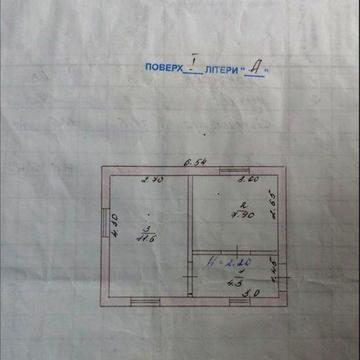 ПОВЕРХ I ЛІТЕРИ "А"
6.54
2.70 3.00
4.30
3
11.6
2
7.90
2.65
H = 2.20
1
4.3
1.45
3.0